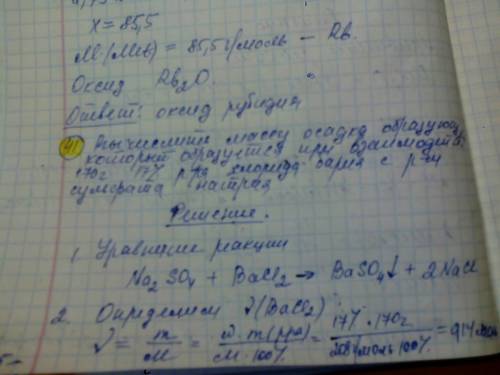 X = 85,5
M(Me) = 85,5 г/моль – Rb.
Оксид Rb₂O.
Ответ: оксид рубидия
41 Вычислите массу осадка образующ
который образуется при взаимодейств.
170г 17% р-ра хлорида бария с р-м
сульфата натрия
Решение.
1. Уравнение реакции
Na₂SO₄ + BaCl₂ → BaSO₄↓ + 2NaCl
2. Определяем ν(BaCl₂)
ν = m/M = ω·m(р-ра)/M·100% = 17%·170г/208г/моль·100% = 0,14моль